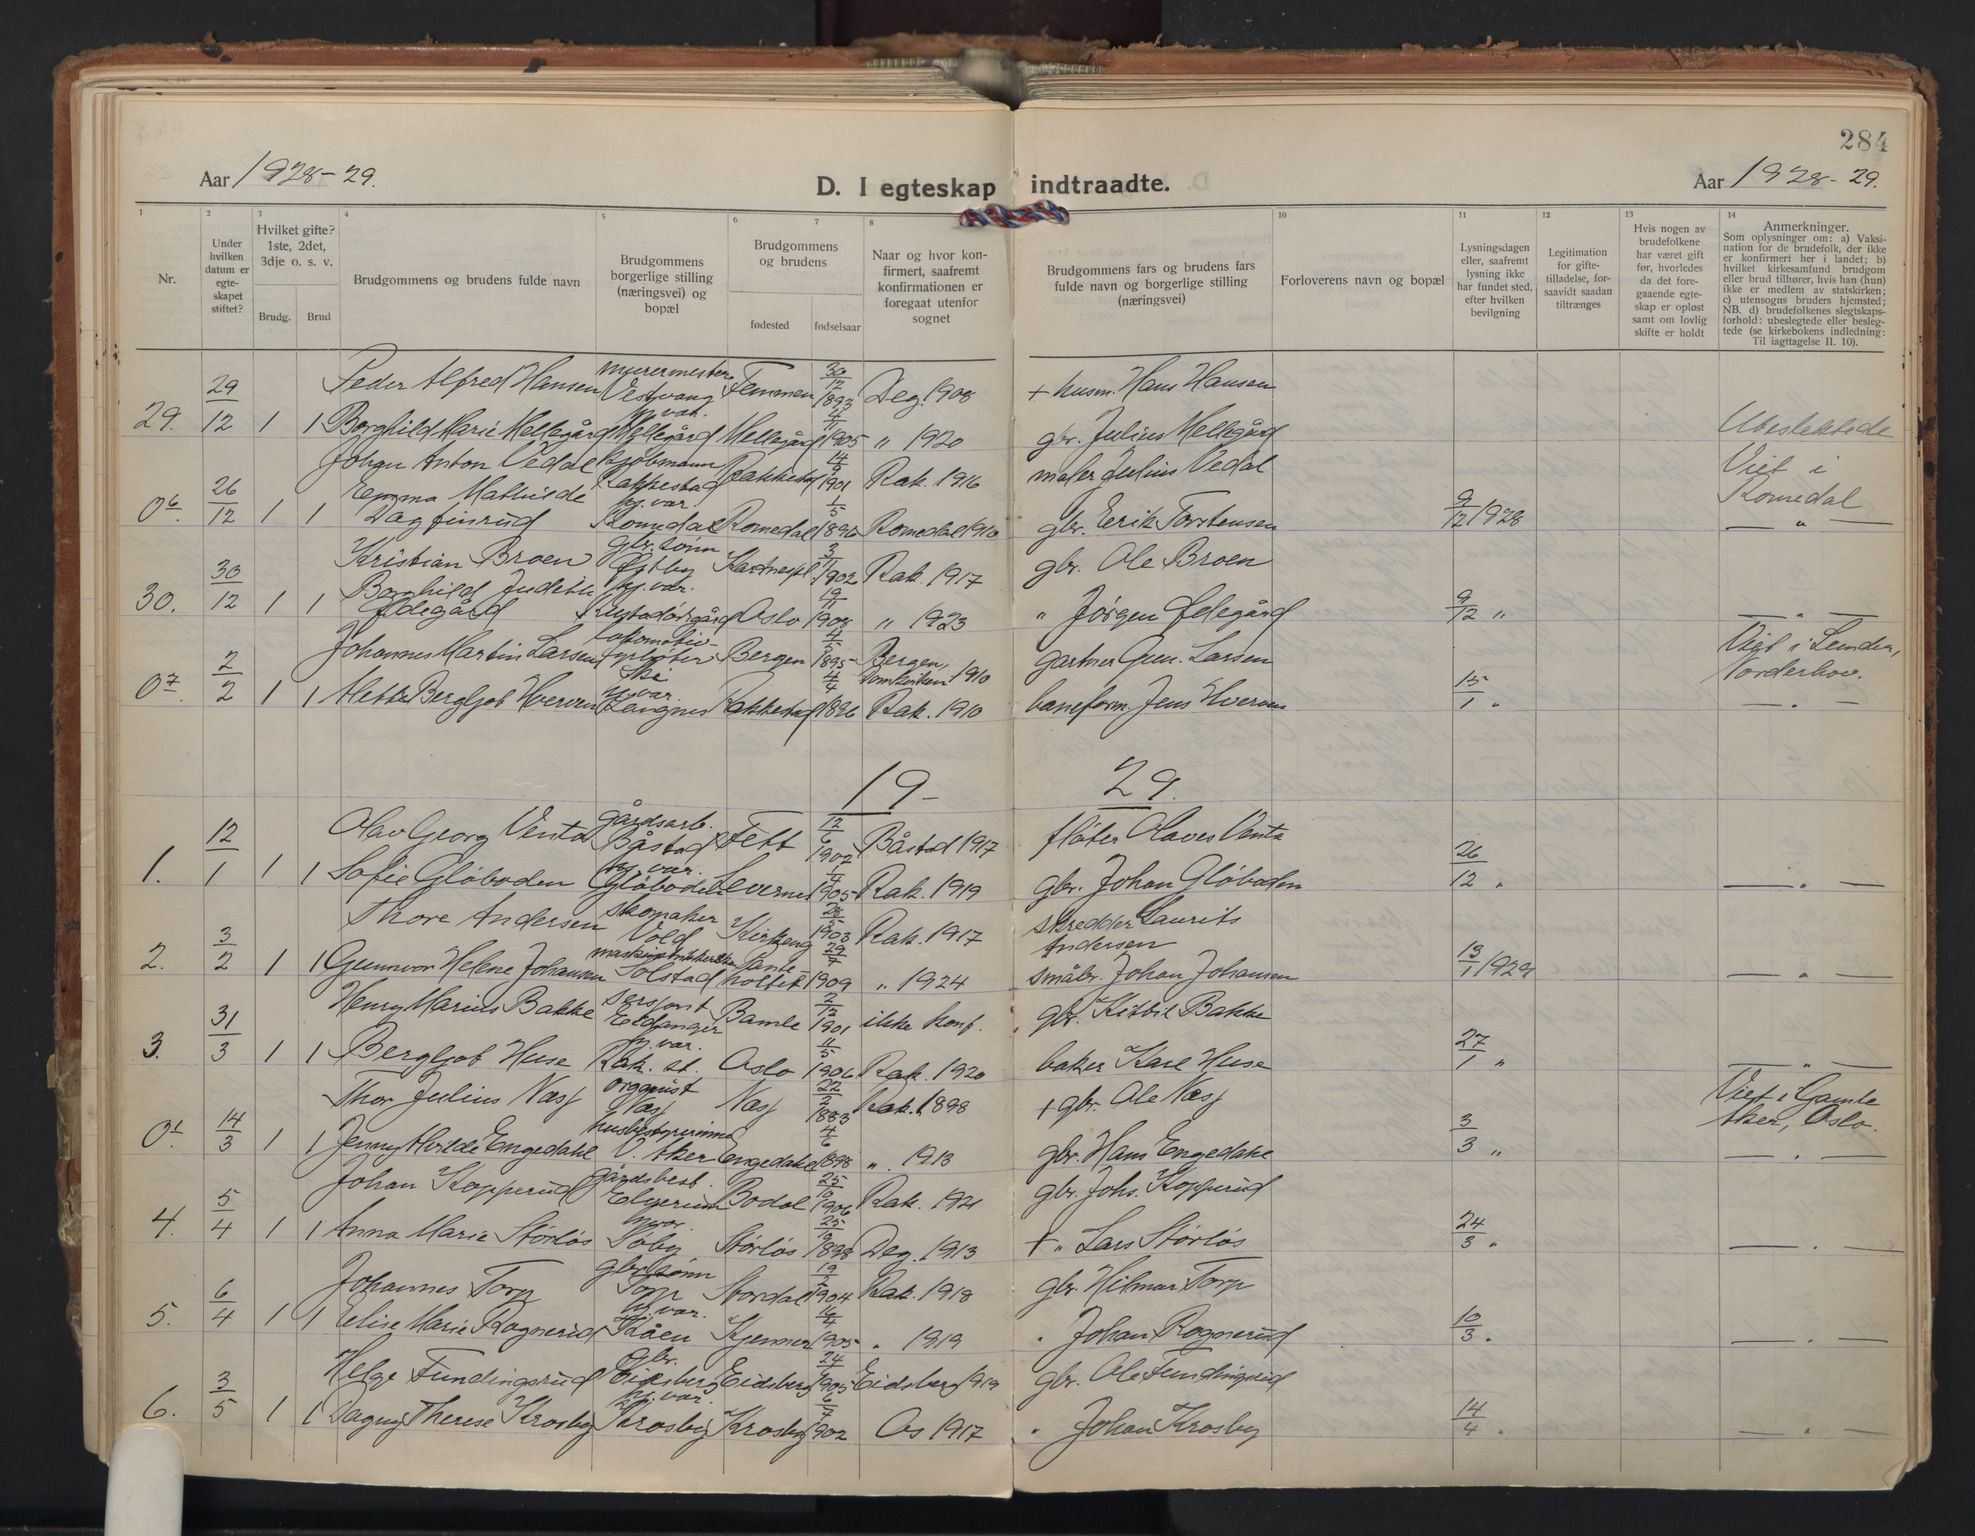 284
Aar 1928-29.
D. I egteskap indtraadte.
Aar 1928-29.
1 2 3 4 5 6 7 8 10 11 12 13 14
Nr.
Under hvilken datum er egteskapet stiftet?
Hvilket gifte? 1ste, 2det, 3dje o. s. v.
Brudg. Brud
Brudgommens og brudens fulde navn
Brudgommens borgerlige stilling (næringsvei) og bopæl
Brudgommens og brudens
fødested fødselsaar
Naar og hvor konfirmert, saafremt konfirmationen er foregaat utenfor sognet
Brudgommens fars og brudens fars fulde navn og borgerlige stilling (næringsvei)
Forloverens navn og bopæl
Lysningsdagen eller, saafremt lysning ikke har fundet sted, efter hvilken bevilgning
Legitimation for giftetilladelse, forsaavidt saadan tiltrænges
Hvis nogen av brudefolkene har været gift før, hvorledes da det foregaaende egteskap er opløst samt om lovlig skifte er holdt
Anmerkninger.
Som oplysninger om: a) Vaksination for de brudefolk, der ikke er konfirmert her i landet; b) hvilket kirkesamfund brudgom eller brud tilhører, hvis han (hun) ikke er medlem av statskirken; c) utensogns bruders hjemsted; NB. d) brudefolkenes slegtskapsforhold: ubeslegtede eller beslegtede (se kirkebokens indledning: Til iagttagelse II. 10).
Peder Alfred Hansen murermester Vestvang Femmen 30/12 1893 Deg. 1908 + husm. Hans Hansen
29. 29/12 1 1 Borghild Marie Mellegård hj. var. Mellegård Mellegård 4/11 1905 " 1920 gbr. Julius Mellegård Ubeslektede
Johan Anton Vedal kjøbmann Rakkestad Rakkestad 14/9 1901 Rak. 1916 maler Julius Vedal Viet i Romedal
0 6. 26/12 1 1 Emma Mathilde Dagfinrud hj. var. Romedal Romedal 1/5 1896 Romedal 1910 gbr. Erik Torstensen 9/12 1928 — " —
Kristian Broen gbr. sønn Østby 3/11 1902 Rak. 1917 gbr. Ole Broen
30. 30/12 1 1 Borghild Judith Ødegård hj. var. Oslo 19/11 1908 " 1923 " Jørgen Ødegård 9/12 " — " —
Johannes Martin Larsen lokomotivfyrbøter Bergen 4/5 1895 Bergen, Domkirken 1910 gartner Gun. Larsen Viet i Norderhov.
0 7 2/2 1 1 Mette Bergljot Hverven hj. var. Langnes Rakkestad 4/4 1896 Rak. 1910 baneform. Jens Hverven 15/1 " — " —
19- 29.
Olav Georg Venta gårdsarb. Båstad Fett 12/6 1902 Båstad 1917 fløter Olaves Venta
1. 12/1 1 1 Sofie Gløboden hj. var. Gløboden Levernes 1/4 1905 Rak. 1919 gbr. Johan Gløboden 26/12 " — " —
Thore Andersen skomaker Vold Kirkeng 1903 Rak. 1917 skredder Laurits Andersen
2. 3/2 1 1 Gunnvor Helene Johansen Solstad 29/7 1909 " 1924 småbr. Johan Johansen 13/1 1929 — " —
Henry Marius Bakke sersjant Eidanger Bamle 2/12 1901 ikke konf. gbr. Kittil Bakke
3. 31/3 1 1 Bergljot Huse hj. var. Rak. st. Oslo 4/5 1906 Rak. 1920 baker Karl Huse 27/1 " — " —
Thor Julius Næsj organist Næsj Næsj 22/2 1883 Rak. 1898 + gbr. Ole Næsj Viet i Gamle Aker, Oslo.
0 1 14/3 1 1 Jenny Alvilde Engedahl husbestyrerinne V. Aker Engedahl 4/6 1898 " 1913 gbr. Hans Engedahl 3/3 " — " —
Johan Kopperud gårdsbest. Elverum Bodal 25/10 1906 Rak. 1921 gbr. Johs. Kopperud
4. 5/4 1 1 Anna Marie Størløs hj. var. Søby Størløs 25/10 1898 Deg. 1913 + " Lars Størløs 24/3 " — " —
Johannes Torp gbr. sønn Torp Stordal 19/5 1904 Rak. 1918 gbr. Hilmar Torp
5. 6/4 1 1 Elise Marie Rognerud hj. var. Kåen Kjenner 16/4 1905 " 1919 " Johan Rognerud 10/3 " — " —
Helge Fundingsrud gbr. Eidsberg Eidsberg 24/1 1905 Eidsberg 1919 gbr. Ole Fundingsrud
6. 3/5 1 1 Dagny Therese Krosby hj. var. Krosby Krosby 6/7 1902 Os 1917 " Johan Krosby 14/4 " — " —